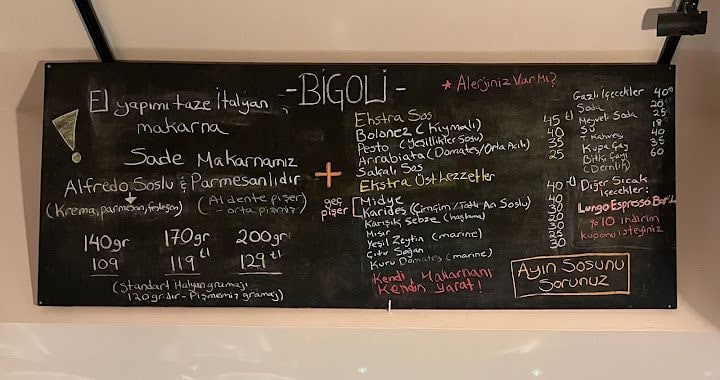 -BİGOLİ-
El yapımı taze İtalyan
makarna
!
Sade Makarnamız
Alfredo Soslu & Parmesanlıdır
(Krema, parmesan, fesleğen)
(Al dente pişer
- orta pişmiş?)
140gr 170gr 200gr
109 119 tl 129 tl
(Standart İtalyan gramajı
120 gr.dır - Pişmemiş gramaj)
+
geç
pişer
* Alerjiniz Var Mı?
Ekstra Sos
Bolonez (Kıymalı) 45 tl
Pesto (Yeşillikler Sosu) 40
Arrabiata (Domates/Orta Acılı) 35
Salçalı Sos 25
Ekstra Üst Lezzetler
Midye 40 tl
Karides (Çimçim/Tatlı Acı Soslu) 40
Karışık Sebze (haşlama)
Mısır
Yeşil Zeytin (marine)
Çıtır Soğan
Kuru Domates (marine) 30
Kendi Makarnanı
Kendin Yarat!
Gazlı İçecekler 40
Soda 20
Meyveli Soda 25
Su 18
T. Kahvesi 40
Kupa Çay 35
Bitki Çayı 60
(Demlik)
Diğer Sıcak
İçecekler:
Lungo Espresso Bar'da
%10 indirim
kuponu isteyiniz
Ayın Sosunu
Sorunuz